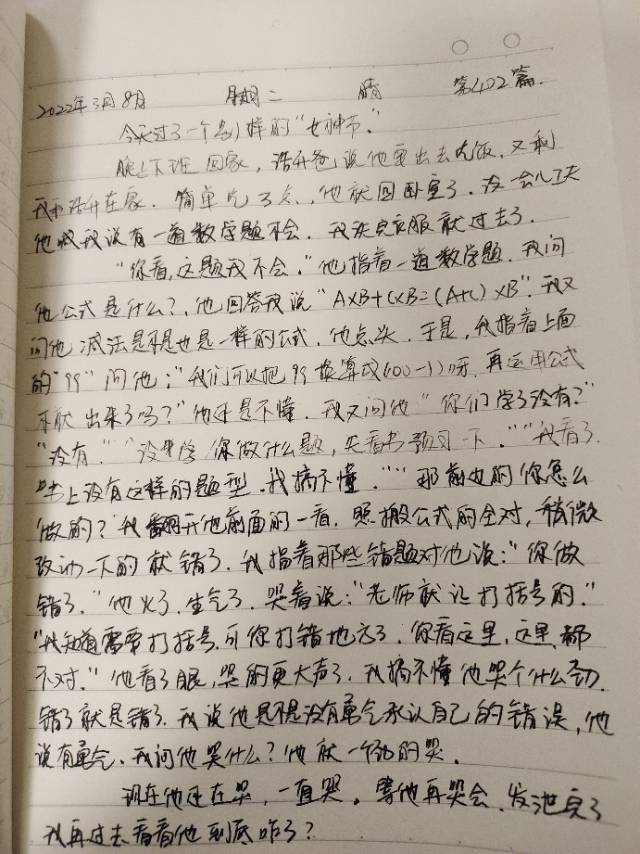 2022年3月8月 星期二 晴 第402篇.
今天过了一个别样的“女神节。”
晚上下班回家，浩升爸说他要出去吃饭，又剩
我和浩升在家. 简单吃了点，他就回卧室了. 没一会儿工夫
他喊我说有一道数学题不会. 我洗完衣服就过去了.
“你看，这题我不会。”他指着一道数学题. 我问
他公式是什么？，他回答我说“A×B+C×B=(A+C)×B”. 我又
问他减法是不是也是一样的公式，他点头. 于是，我指着上面
的“99”问他：“我们可以把99换算成(100-1)呀. 再运用公式
不就出来了吗？”他还是不懂. 我又问他“你们学了没有？”
“没有.”“没学你做什么题，先看书预习一下。”“我看了.
书上没有这样的题型. 我搞不懂。”“那前边的你怎么
做的？”我翻开他前面的一看，照搬公式的全对，稍微
改动一下的就错了. 我指着那些错题对他说：“你做
错了.”他火了. 生气了. 哭着说：“老师就让打括号的.”
“我知道需要打括号. 可你打错地方了. 你看这里，这里，都
不对.”他看了眼，哭的更大声了. 我搞不懂他哭个什么劲.
错了就是错了. 我说他是不是没有勇气承认自己的错误，他
说有勇气. 我问他哭什么？他就一个劲的哭.
现在他还在哭，一直哭。等他再哭会. 发泄完了
我再过去看看他到底咋了？